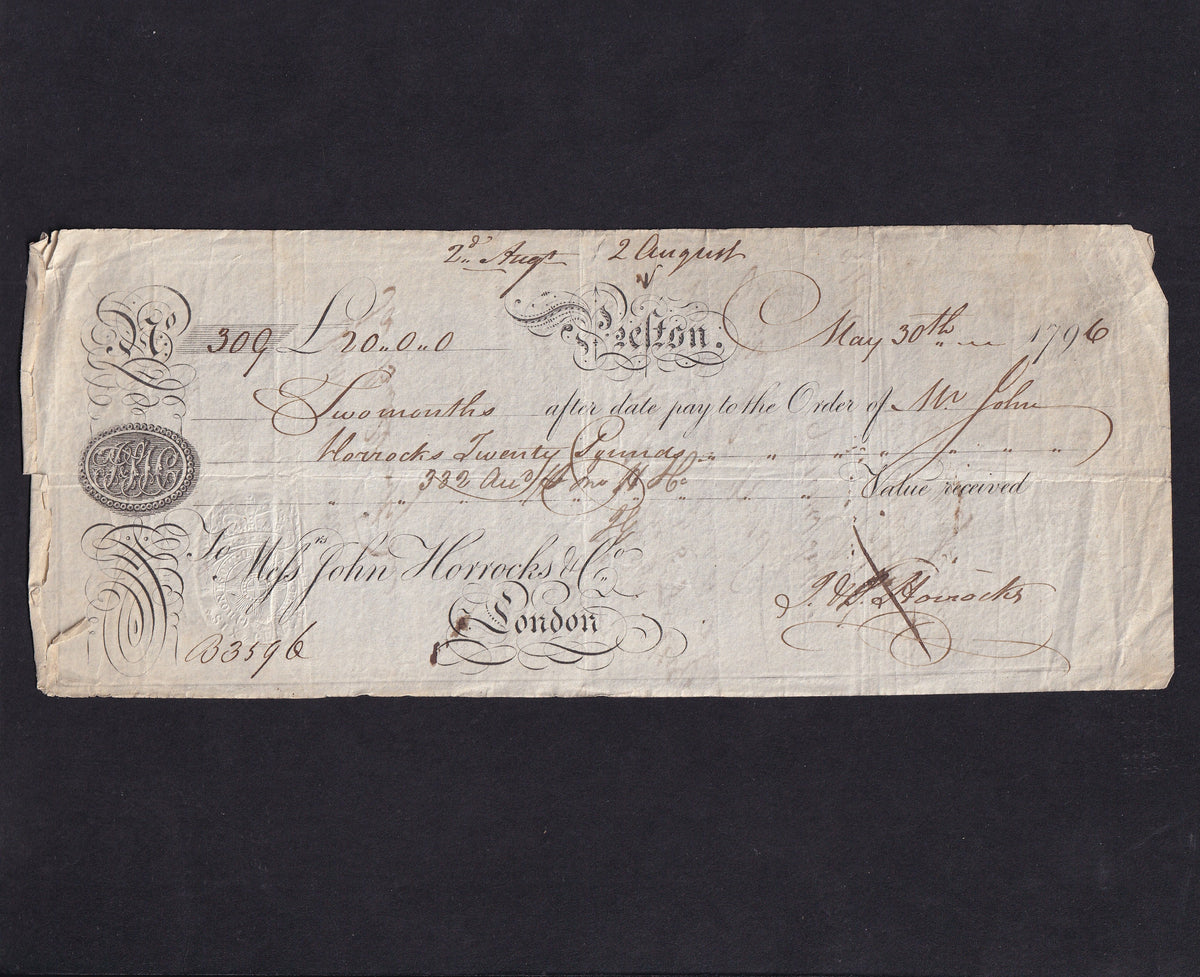 2d. Augt 2 August
No 309 £20..0..0 Preston. May 30th 1796
Two months after date pay to the Order of Mr John
Horrocks Twenty Pounds
322 Value received
To Messrs John Horrocks & Co.
London
J. & S. Horrocks
B3596